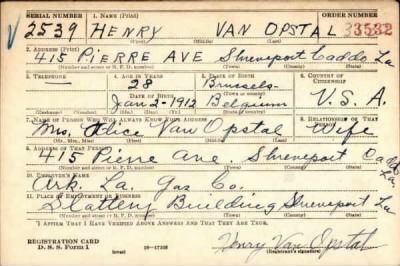 SERIAL NUMBER 1. NAME (Print) ORDER NUMBER
V 2539 HENRY VAN OPSTAL 33532
(First) (Middle) (Last)
2. ADDRESS (Print)
415 PIERRE AVE Shreveport Caddo La
(Number and street or R. F. D. number) (Town) (County) (State)
3. TELEPHONE 4. AGE IN YEARS 5. PLACE OF BIRTH 6. COUNTRY OF CITIZENSHIP
— 28 Brussels
DATE OF BIRTH (Town or county)
Jan 2-1912 Belgium U.S.A.
(Exchange) (Number) (Mo.) (Day) (Yr.) (State or country)
7. NAME OF PERSON WHO WILL ALWAYS KNOW YOUR ADDRESS 8. RELATIONSHIP OF THAT PERSON
Mrs. Alice Van Opstal Wife
(Mr., Mrs., Miss) (First) (Middle) (Last)
9. ADDRESS OF THAT PERSON
415 Pierre Ave. Shreveport Caddo La.
(Number and street or R. F. D. number) (Town) (County) (State)
10. EMPLOYER'S NAME
Ark. La. Gas Co.
11. PLACE OF EMPLOYMENT OR BUSINESS
Slattery Building Shreveport La
(Number and street or R. F. D. number) (Town) (County) (State)
I AFFIRM THAT I HAVE VERIFIED ABOVE ANSWERS AND THAT THEY ARE TRUE.
REGISTRATION CARD
D. S. S. Form 1 (over) 16-17105 Henry Van Opstal
(Registrant's signature)